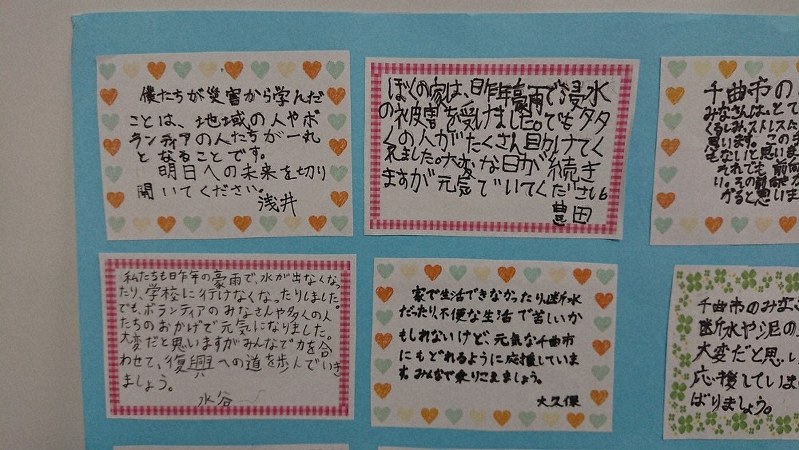 僕たちが災害から学んだ
ことは、地域の人やボ
ランティアの人たちが一丸
となることです。
明日への未来を切り
開いてください。
浅井
ぼくの家は、昨年豪雨で浸水
の被害を受けました。でもタタ
くの人がたくさん助けてく
れました。大変な日が続き
ますが元気でいてください。
豊田
千曲市の
みなさんは、とて
くるしみ、ストレスた
思います。この
せないと思いま
それでも前向
い。その前向
げると思いま
私たちも昨年の豪雨で、水が出なくなっ
たり、学校に行けなくなったりしました。
でも、ボランティアのみなさんや多くの人
たちのおかげで元気になりました。
大変だと思いますがみんなで力を合
わせて、復興への道を歩んでいき
ましょう。
水谷
家で生活できなかったり、断水
だったり、不便な生活で苦しいか
もしれないけど、元気な千曲市
にもどれるように応援していま
す。みんなで乗りこえましょう。
大久保
千曲市のみなさ
断水や泥の
大変だと思い
応援していま
ばりましょう。